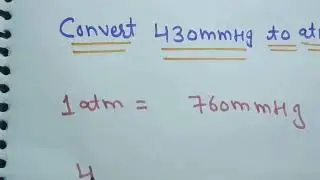 Convert 430mmHg to atm
1 atm = 760mmHg
4